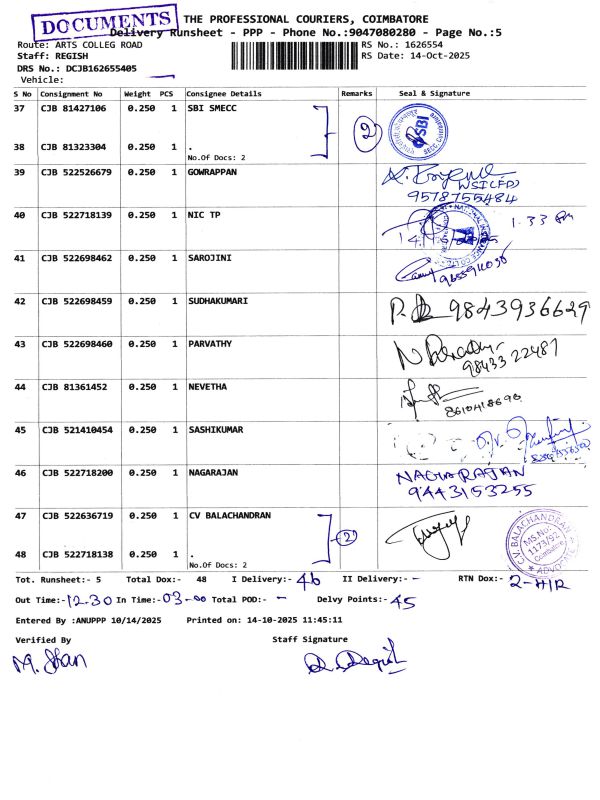 DOCUMENTS
THE PROFESSIONAL COURIERS, COIMBATORE
Delivery Runsheet - PPP - Phone No.:9047080280 - Page No.:5
Route: ARTS COLLEG ROAD
RS No.: 1626554
Staff: REGISH
RS Date: 14-Oct-2025
DRS No.: DCJB162655405
Vehicle:
S No Consignment No Weight PCS Consignee Details Remarks Seal & Signature
37 CJB 81427106 0.250 1 SBI SMECC
2
SBI
38 CJB 81323304 0.250 1 .
No.Of Docs: 2
39 CJB 522526679 0.250 1 GOWRAPPAN
9578755484
40 CJB 522718139 0.250 1 NIC TP
1.33 Pm
41 CJB 522698462 0.250 1 SAROJINI
42 CJB 522698459 0.250 1 SUDHAKUMARI
9843936629
43 CJB 522698460 0.250 1 PARVATHY
98433 22487
44 CJB 81361452 0.250 1 NEVETHA
8610418690
45 CJB 521410454 0.250 1 SASHIKUMAR
46 CJB 522718200 0.250 1 NAGARAJAN
NAGARAJAN
9443153255
47 CJB 522636719 0.250 1 CV BALACHANDRAN
2
C.V. BALACHANDRAN
MS.No:
1173/92
Coimbatore
ADVOCATE
48 CJB 522718138 0.250 1 .
No.Of Docs: 2
Tot. Runsheet:- 5 Total Dox:- 48 I Delivery:- 46 II Delivery:- - RTN Dox:- 2-H/R
Out Time:-12.30 In Time:-03-00 Total POD:- - Delvy Points:- 45
Entered By :ANUPPP 10/14/2025 Printed on: 14-10-2025 11:45:11
Verified By Staff Signature